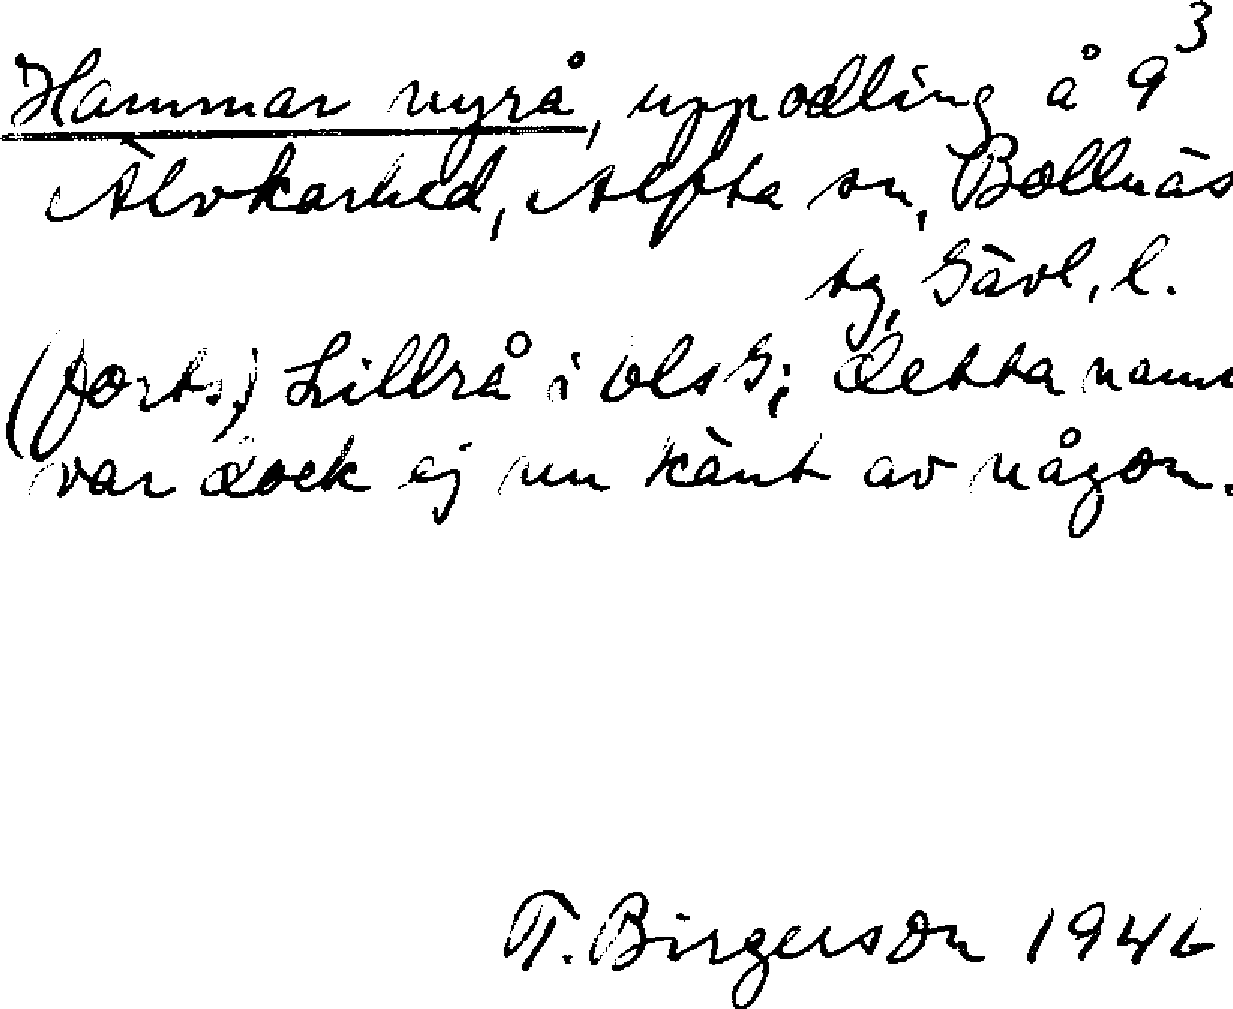 Hammar nyrå, uppodling å 9³
Älvkarhed, Alfta sn, Bollnäs
tg, Gävl. l.
(forts.) Lillrå i OlsG; detta namn
var dock ej nu känt av någon.
T. Birgerson 1946